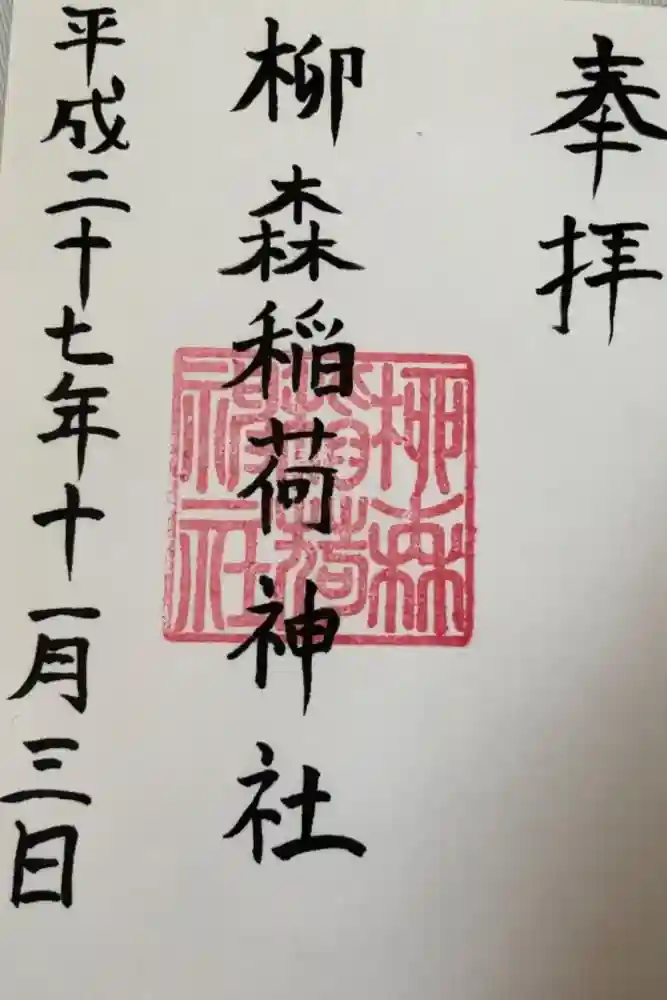 奉拝
柳森稲荷神社
平成二十七年十一月三日
柳森
稲荷
神社